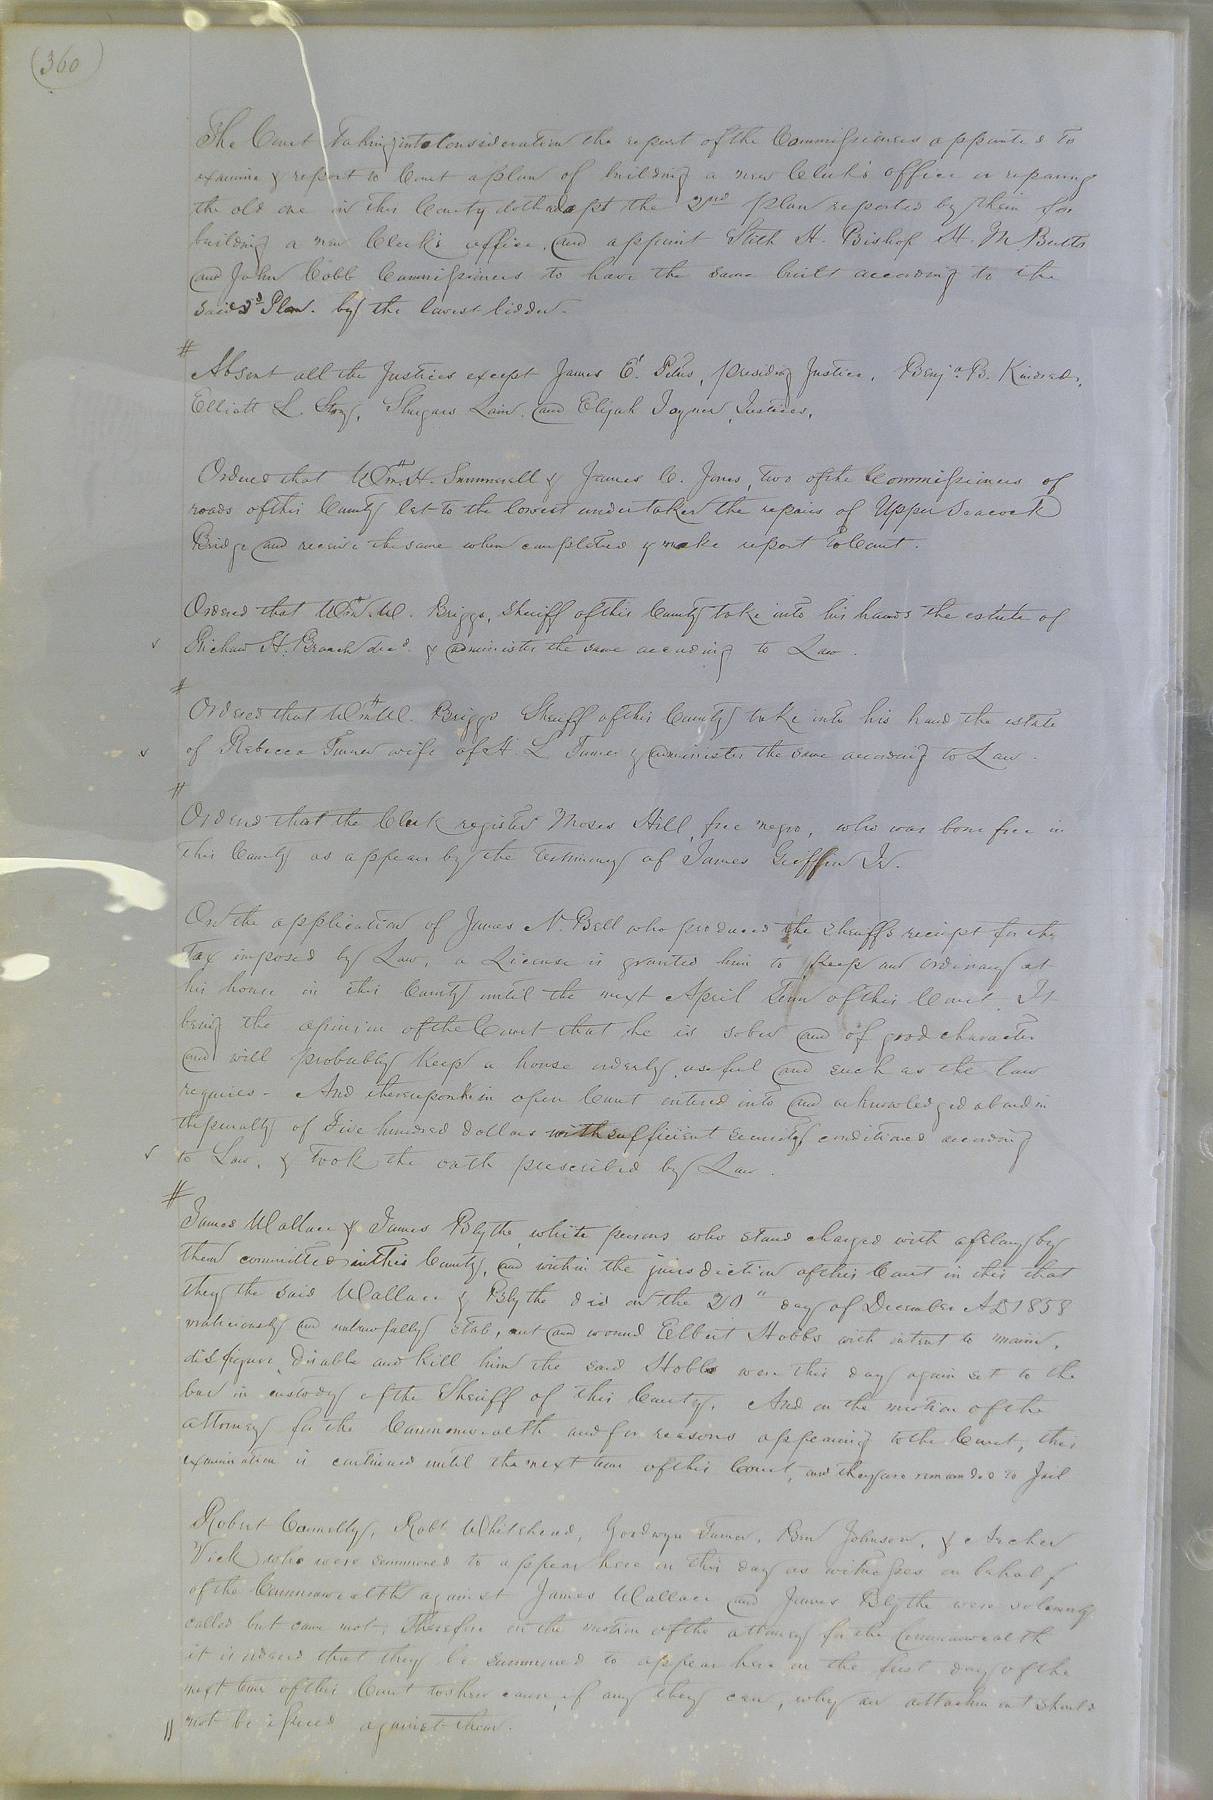 (360)
The Court taking into Consideration the report of the Commissioners appointed to
examine & report to Court a plan of building a new Clerk's office or reparing
the old one in this County doth adopt the 2nd plan reported by them for
building a new Clerk's office, and appoint Stith H. Bishop H. M. Butts
and John Cobb Commissioners to have the same built according to the
said 2d Plan. by the lowest bidder.
#
Absent all the Justices except James E. Peters, presiding Justice, Benja. B. Kindred,
Elliott L. Story, Shugars Lain, and Elijah Joyner, Justices,
Ordered that Wm. H. Summerell & James C. Jones, two of the Commissioners of
roads of this County let to the lowest undertaker the repairs of Upper Seacock
Bridge and receive the same when completed & make report to Court.
Ordered that Wm. W. Briggs, Sheriff of this County take into his hands the estate of
Richard H. Branch decd. & administer the same according to Law.
#
Ordered that Wm. W. Briggs Sheriff of this County take into his hand the estate
of Rebecca Turner wife of H L Turner & administer the same according to Law.
#
Ordered that the Clerk register Moses Hill, free negro, who was born free in
this County as appears by the testimony of James Griffin Jr.
On the application of James N. Bell who produced the Sheriff's receipt for the
Tax imposed by Law, a License is granted him to keep an ordinary at
his house in this County until the next April Term of this Court. It
being the opinion of the Court that he is sober and of good character
and will probably keep a house orderly, useful and such as the law
requires. And thereupon he in open Court entered into and acknowledged a bond in
the penalty of Five hundred dollars with sufficient security conditioned according
to Law, & took the oath prescribed by Law.
#
James Wallace & James Blythe, white persons who stand charged with a felony by
them committed in this County, and within the jurisdiction of this Court in this that
they the said Wallace & Blythe did on the 20" day of December AD 1858
maliciously and unlawfully stab, cut and wound Elbert Hobbs with intent to maim,
disfigure, disable and kill him the said Hobbs were this day again set to the
bar in custody of the Sheriff of this County. And on the motion of the
attorney for the Commonwealth and for reasons appearing to the Court, this
examination is continued until the next term of this Court, and they are remanded to Jail
Robert Connelly, Robt Whitehead, Goodwyn Turner, Ben Johnson, & Archer
Vick who were summoned to appear here on this day as witnesses on behalf
of the Commonwealth against James Wallace and James Blythe were solemnly
called but came not; Therefore on the motion of the attorney for the Commonwealth
it is ordered that they be summoned to appear here on the first day of the
next term of this Court to shew cause, if any they can, why an attachment should
not be issued against them.